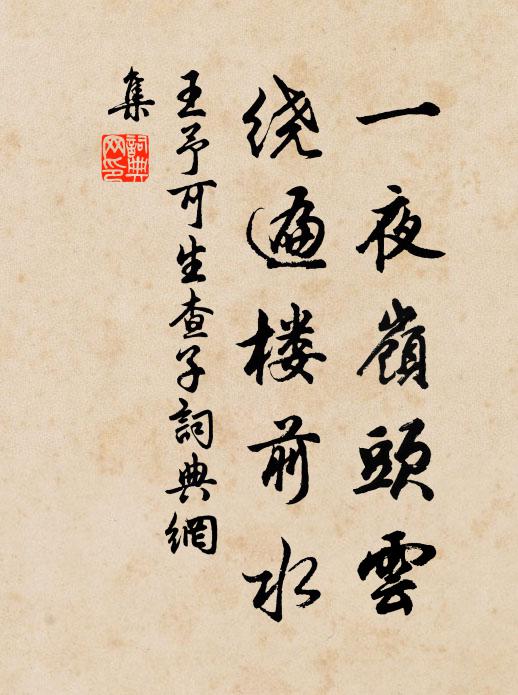 一夜嶺頭雲
绕遍楼前水
王予可生查子詞典網
集
詞典
网印